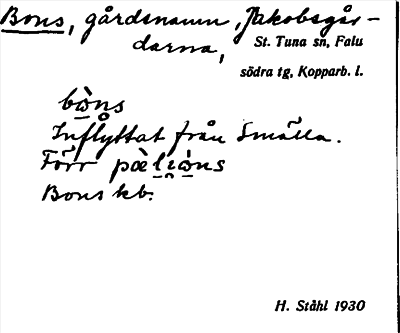 Bons, gårdsnamn, Jakobsgår-
darna,
St. Tuna sn, Falu
södra tg, Kopparb. l.
bò̤ns
Inflyttat från Smålla.
Förr pàli̯ò̤ns
Bons kb.
H. Ståhl 1930